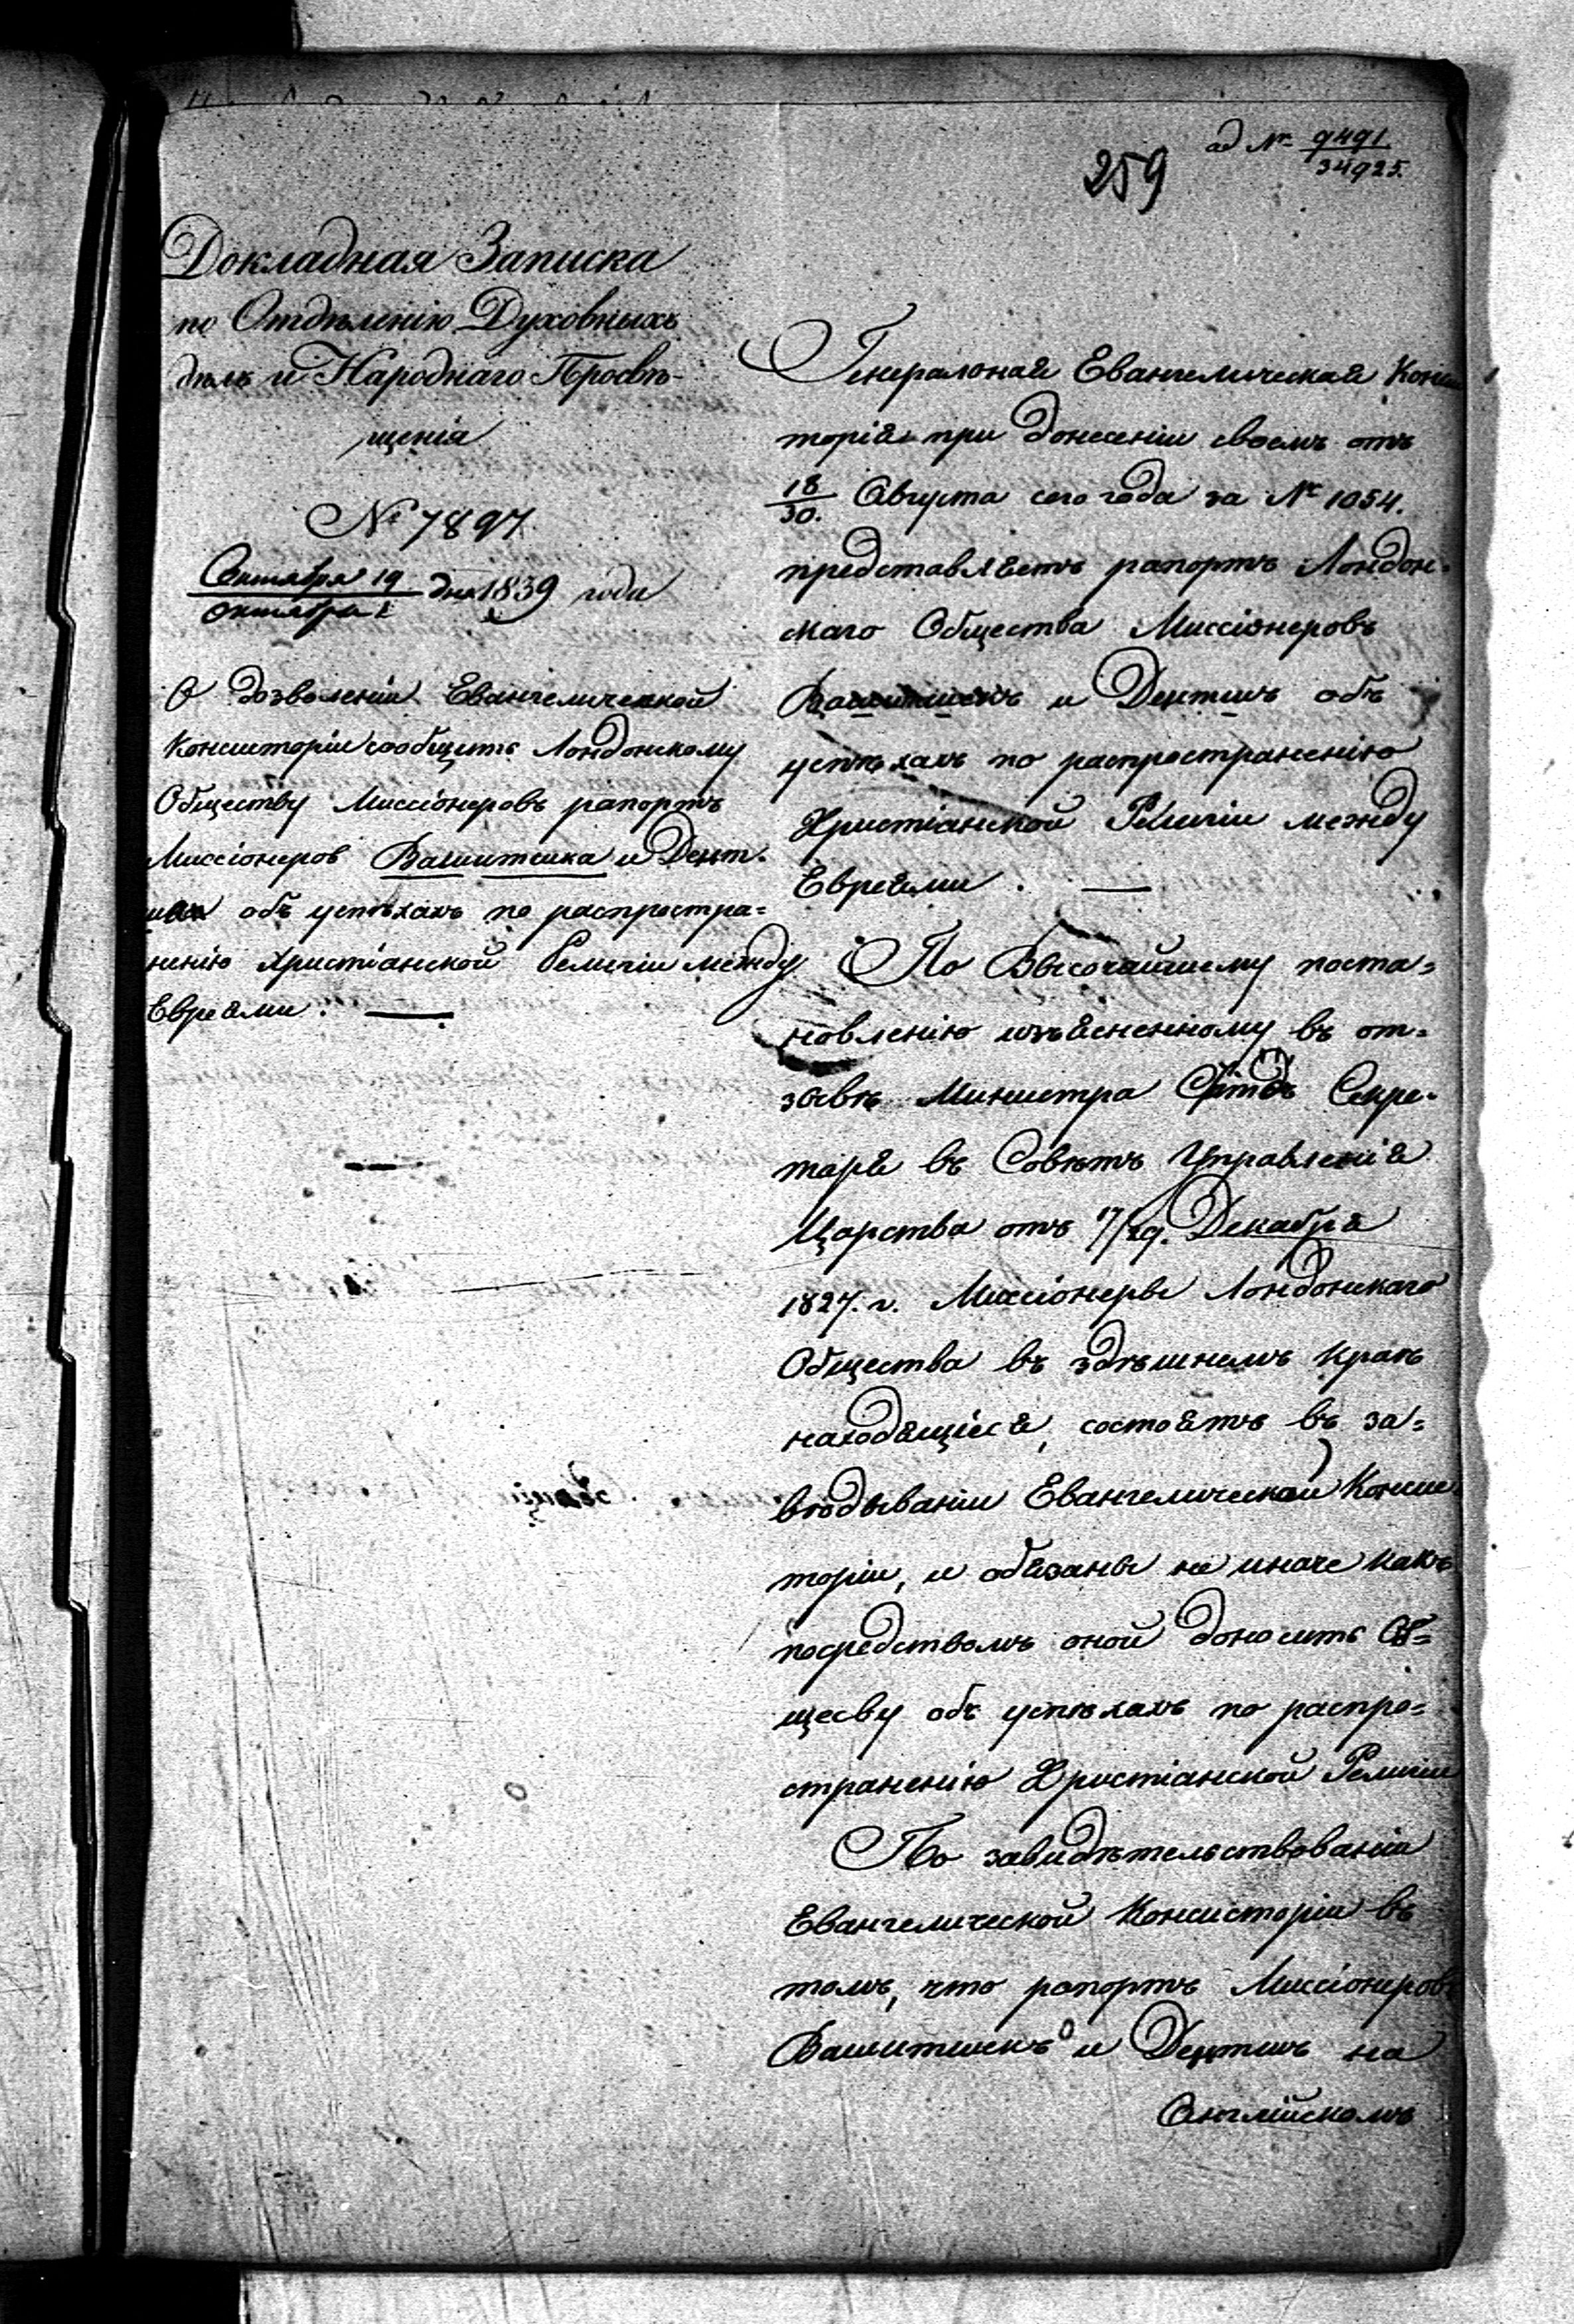 ad № 9491/34925.
259
Докладная Записка
по Отдѣленію Духовныхъ
дѣлъ и Народнаго Просвѣ-
щенія
№ 7897
Сентября 19 / Октября 1 дня 1839 года
О дозволеніи Евангелической
Консисторіи сообщить Лондонскому
Обществу Миссіонеровъ рапортъ
Миссіонеров Вашитшка и Дейт-
ша объ успѣхахъ по распростра=
ненію Христіанской Религіи между
Евреями. —
Генеральная Евангелическая Конси
торія при донесеніи своемъ отъ
18/30. Августа сего года за № 1054.
представляетъ рапортъ Лондон-
скаго Общества Миссіонеровъ
и Дейтшъ объ
успѣхахъ по распространенію
Христіанской Религіи между
Евреями. —
По Высочайшему поста=
новленію изъясненному въ от=
зывѣ Министра Секре-
таря въ Совѣтъ Управленія
Царства отъ 17/29. Декабря
1827. г. Миссіонеры Лондонскаго
Общества въ здѣшнемъ краѣ
находящіеся, состоятъ въ за=
вѣдываніи Евангелической Конси
торіи, и обязаны не иначе какъ
посредствомъ оной доносить Об=
щесву объ успѣхахъ по распро=
страненію Христіанской Религіи
По завидѣтельствованіи
Евангелической Консисторіи въ
томъ, что рапортъ Миссіонеровъ
Вашитшекъ и Дейтшъ на
Англійскомъ